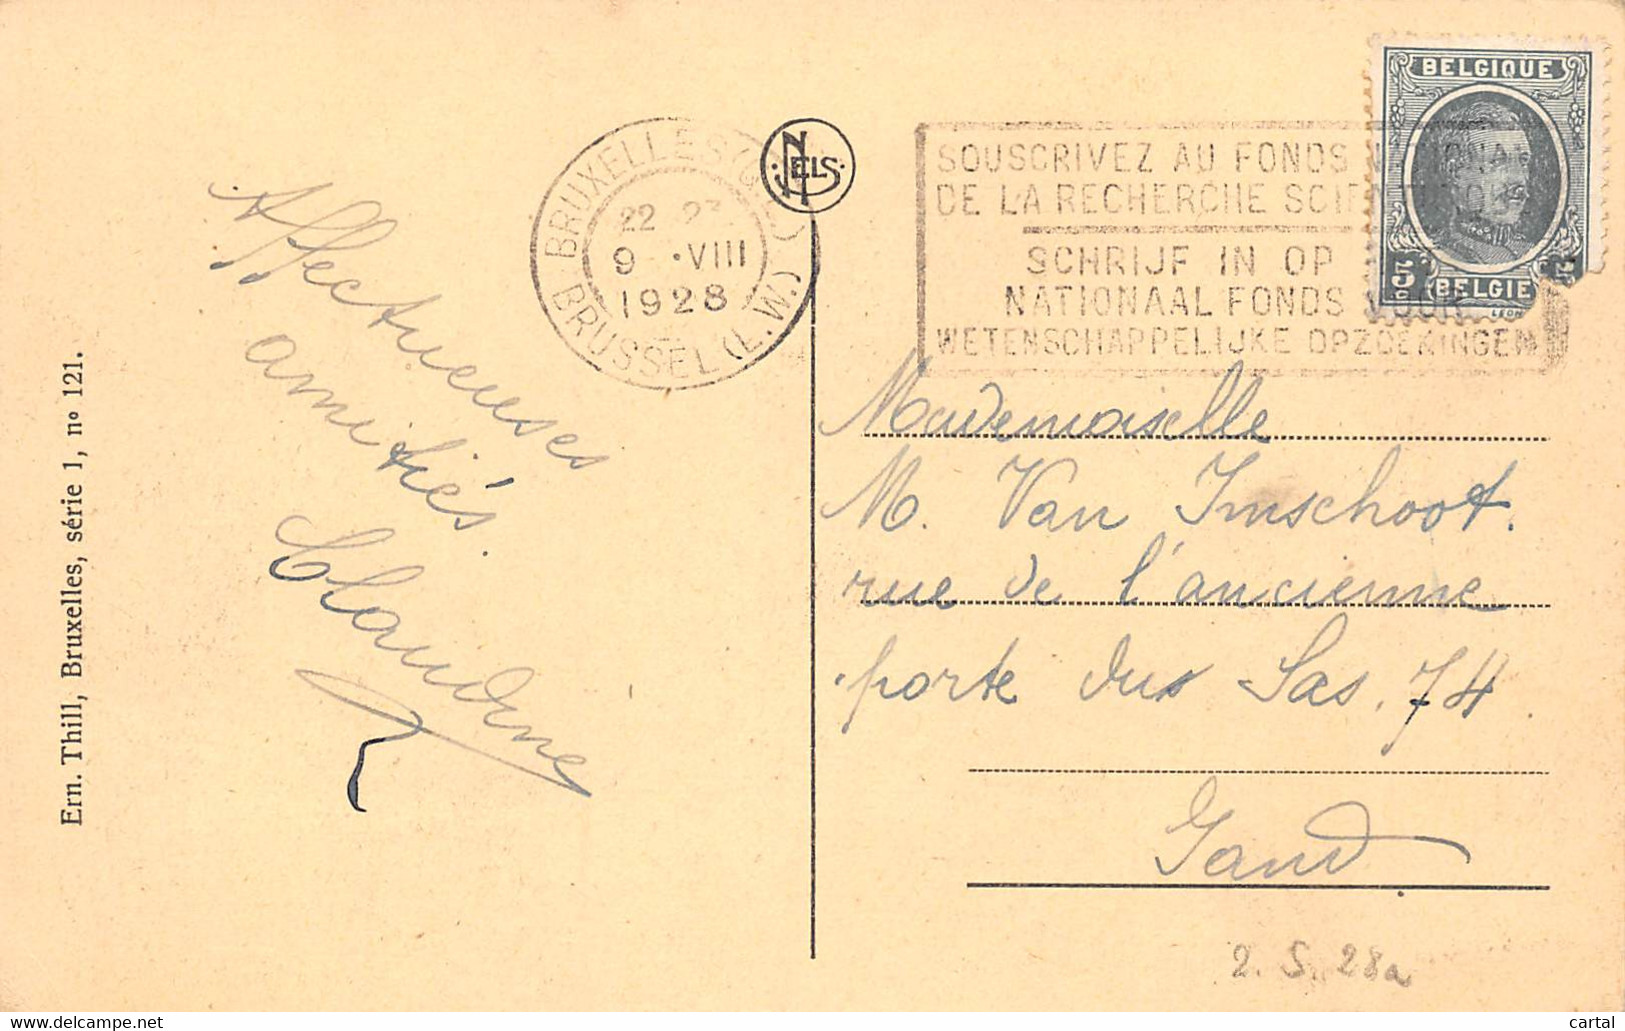 Ern. Thill, Bruxelles, série 1, nº 121.
Affectueuses
amitiés.
Claudine
BRUXELLES
22
9 ·VIII
1928
BRUSSEL (L.W.)
NELS
SOUSCRIVEZ AU FONDS NATIONAL
DE LA RECHERCHE SCIENTIFIQUE
SCHRIJF IN OP
NATIONAAL FONDS VOOR
WETENSCHAPPELIJKE OPZOEKINGEN
BELGIQUE
5 5
BELGIE
Mademoiselle
M. Van Imschoot.
rue de l'ancienne
porte dus Sas. 74.
Gand
2. S. 28a
© delcampe.net
cartal